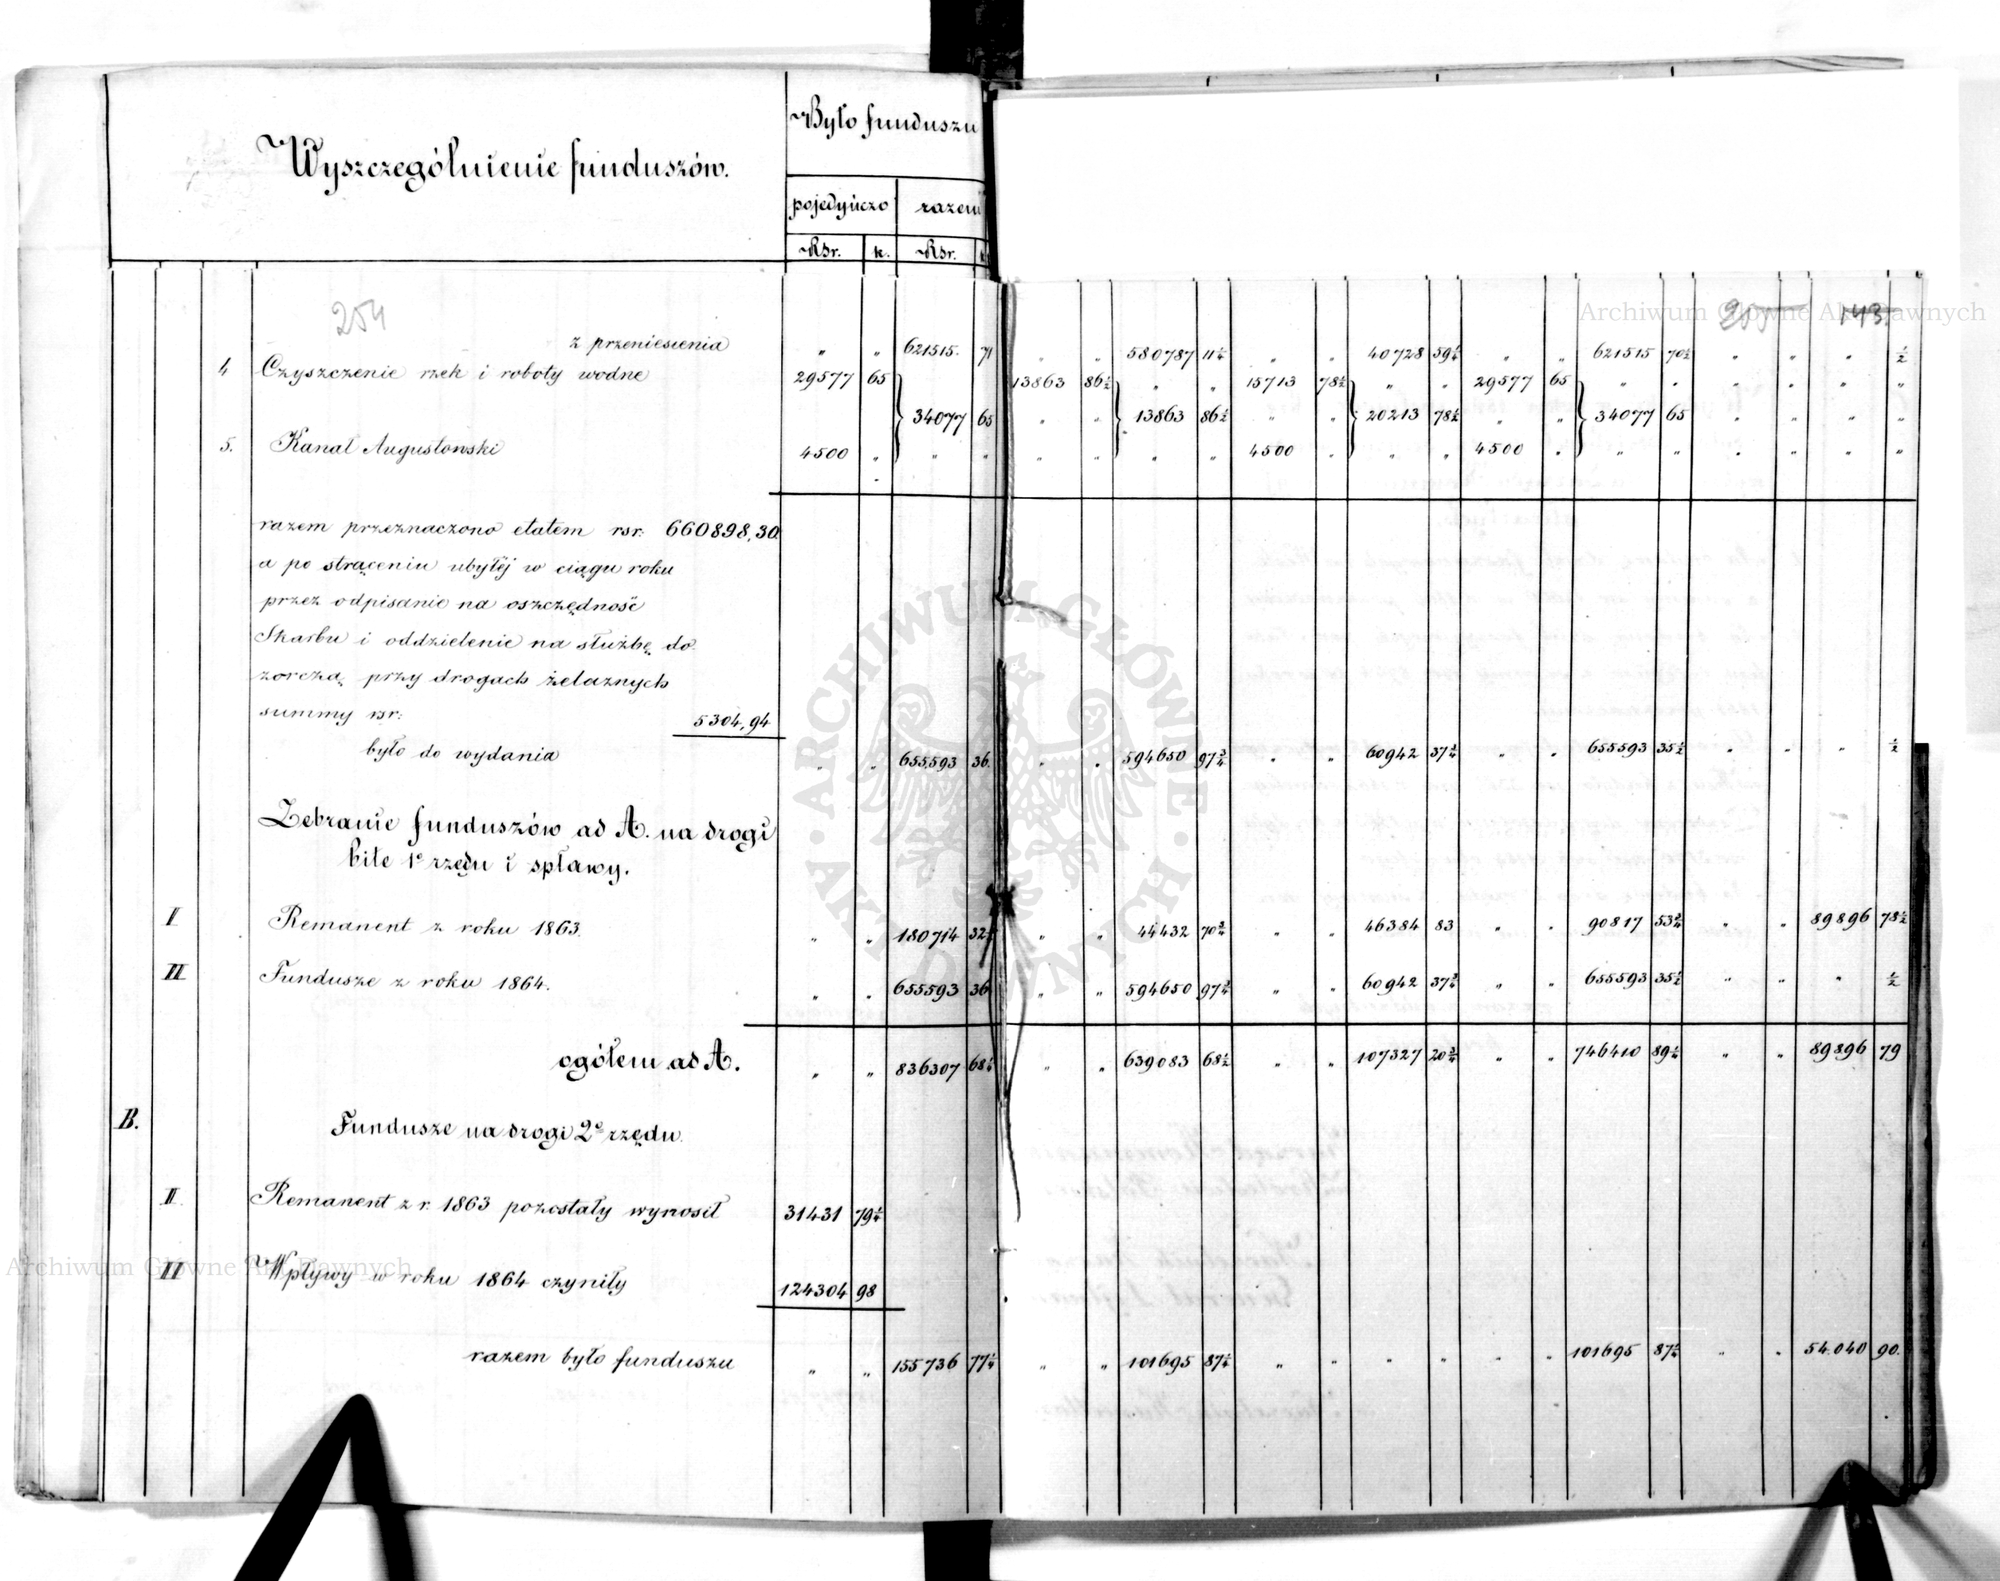 Wyszczególnienie funduszów.
Było funduszu
pojedyńczo razem
Rsr. k. Rsr. k
254 255 143.
z przeniesienia „ „ 621515. 71 „ „ 580787 11¼ „ „ 40728 59¼ „ „ 621515 70½ „ „ „ ½
4 Czyszczenie rzek i roboty wodne 29577 65 13863 86½ „ „ 15713 78½ „ „ 29577 65 „ „ „ „ „ „
34077 65 „ „ 13863 86½ „ „ 20213 78½ „ „ 34077 65 „ „ „ „
5. Kanał Augustowski 4500 „ „ „ „ „ „ „ 4500 „ „ „ 4500 „ „ „ „ „ „ „
razem przeznaczono etatem rsr. 660898,30
a po strąceniu ubyłéj w ciągu roku
przez odpisanie na oszczędność
Skarbu i oddzielenie na służbę do
zorczą przy drogach żelaznych
summy rsr: 5304,94
było do wydania „ „ 655593 36. „ „ 594650 97¾ „ „ 60942 37¾ „ „ 655593 35½ „ „ „ ½
Zebranie funduszów ad A. na drogi
bite 1º rzędu i spławy.
I Remanent z roku 1863. „ „ 180714 32 „ „ 44432 70¾ „ „ 46384 83 „ „ 90817 53¾ „ „ 89896 78½
II Fundusze z roku 1864. „ „ 655593 36 „ „ 594650 97¾ „ „ 60942 37¾ „ „ 655593 35½ „ „ „ ½
ogółem ad A. „ „ 836307 68¼ „ „ 639083 68½ „ „ 107327 20¾ „ „ 746410 89¼ „ „ 89896 79
B. Fundusze na drogi 2º rzędu.
I Remanent z r. 1863 pozostały wynosił 31431 79¼
II Wpływy w roku 1864 czyniły 124304 98
razem było funduszu „ „ 155736 77¼ „ „ 101695 87¼ „ „ „ „ „ „ 101695 87¼ „ „ 54.040 90.
Archiwum Główne Akt Dawnych
Archiwum Główne Akt Dawnych
ARCHIWUM GŁÓWNE AKT DAWNYCH